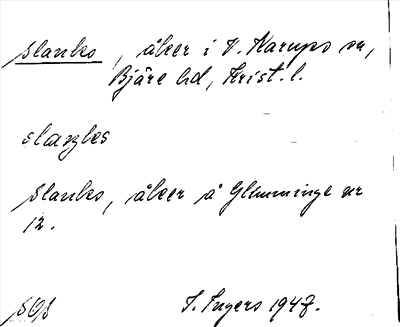 Slanks, åker i V. Karups sn,
Bjäre hd, Krist. l.
slaŋks
Slanks, åker å Glimminge nr
12.
I. Ingers 1947.